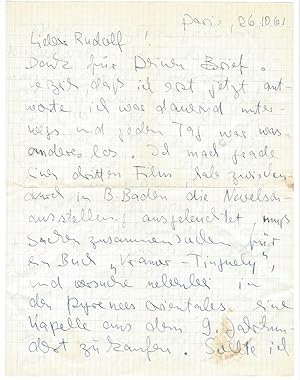 Paris, 26.10.61
Lieber Rudolf!
Dank für Deinen Brief.
verzeih daß ich erst jetzt ant-
worte, ich war dauernd unter-
wegs und jeden Tag war was
anderes los. Ich mach grade
einen dritten Film habe zwischen-
durch in B. Baden die
ausstellung ausgeleuchtet muß
Sachen zusammensuchen für
ein Buch „Kramer-Tinguely",
und versuche nebenbei in
den pyrenees orientales eine
Kapelle aus dem 9. Jahrhun-
dert zu kaufen. Sollte ich